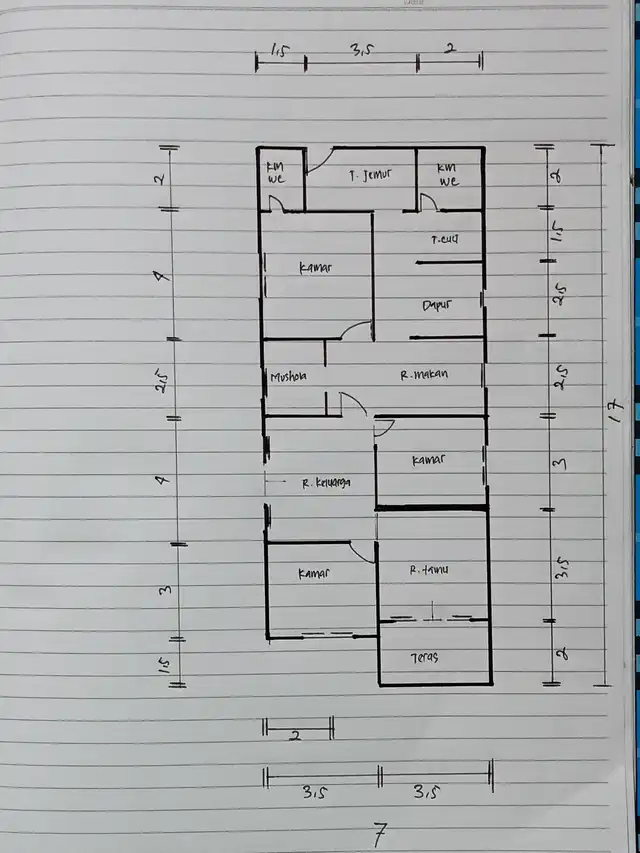 1,5 3,5 2
km
wc
T. Jemur
km
wc
2
2
T.cuci
1.5
Kamar
4
Dapur
2.5
Mushola
R.makan
2,5
2.5
17
Kamar
3
R. Keluarga
4
Kamar
R. tamu
3
3.5
Teras
1.5
2
2
3,5 3,5
7